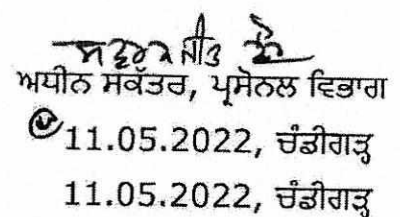 ਸਵਰਨਜੀਤ ਕੌਰ
ਅਧੀਨ ਸਕੱਤਰ, ਪ੍ਰਸੋਨਲ ਵਿਭਾਗ
11.05.2022, ਚੰਡੀਗੜ੍ਹ
11.05.2022, ਚੰਡੀਗੜ੍ਹ